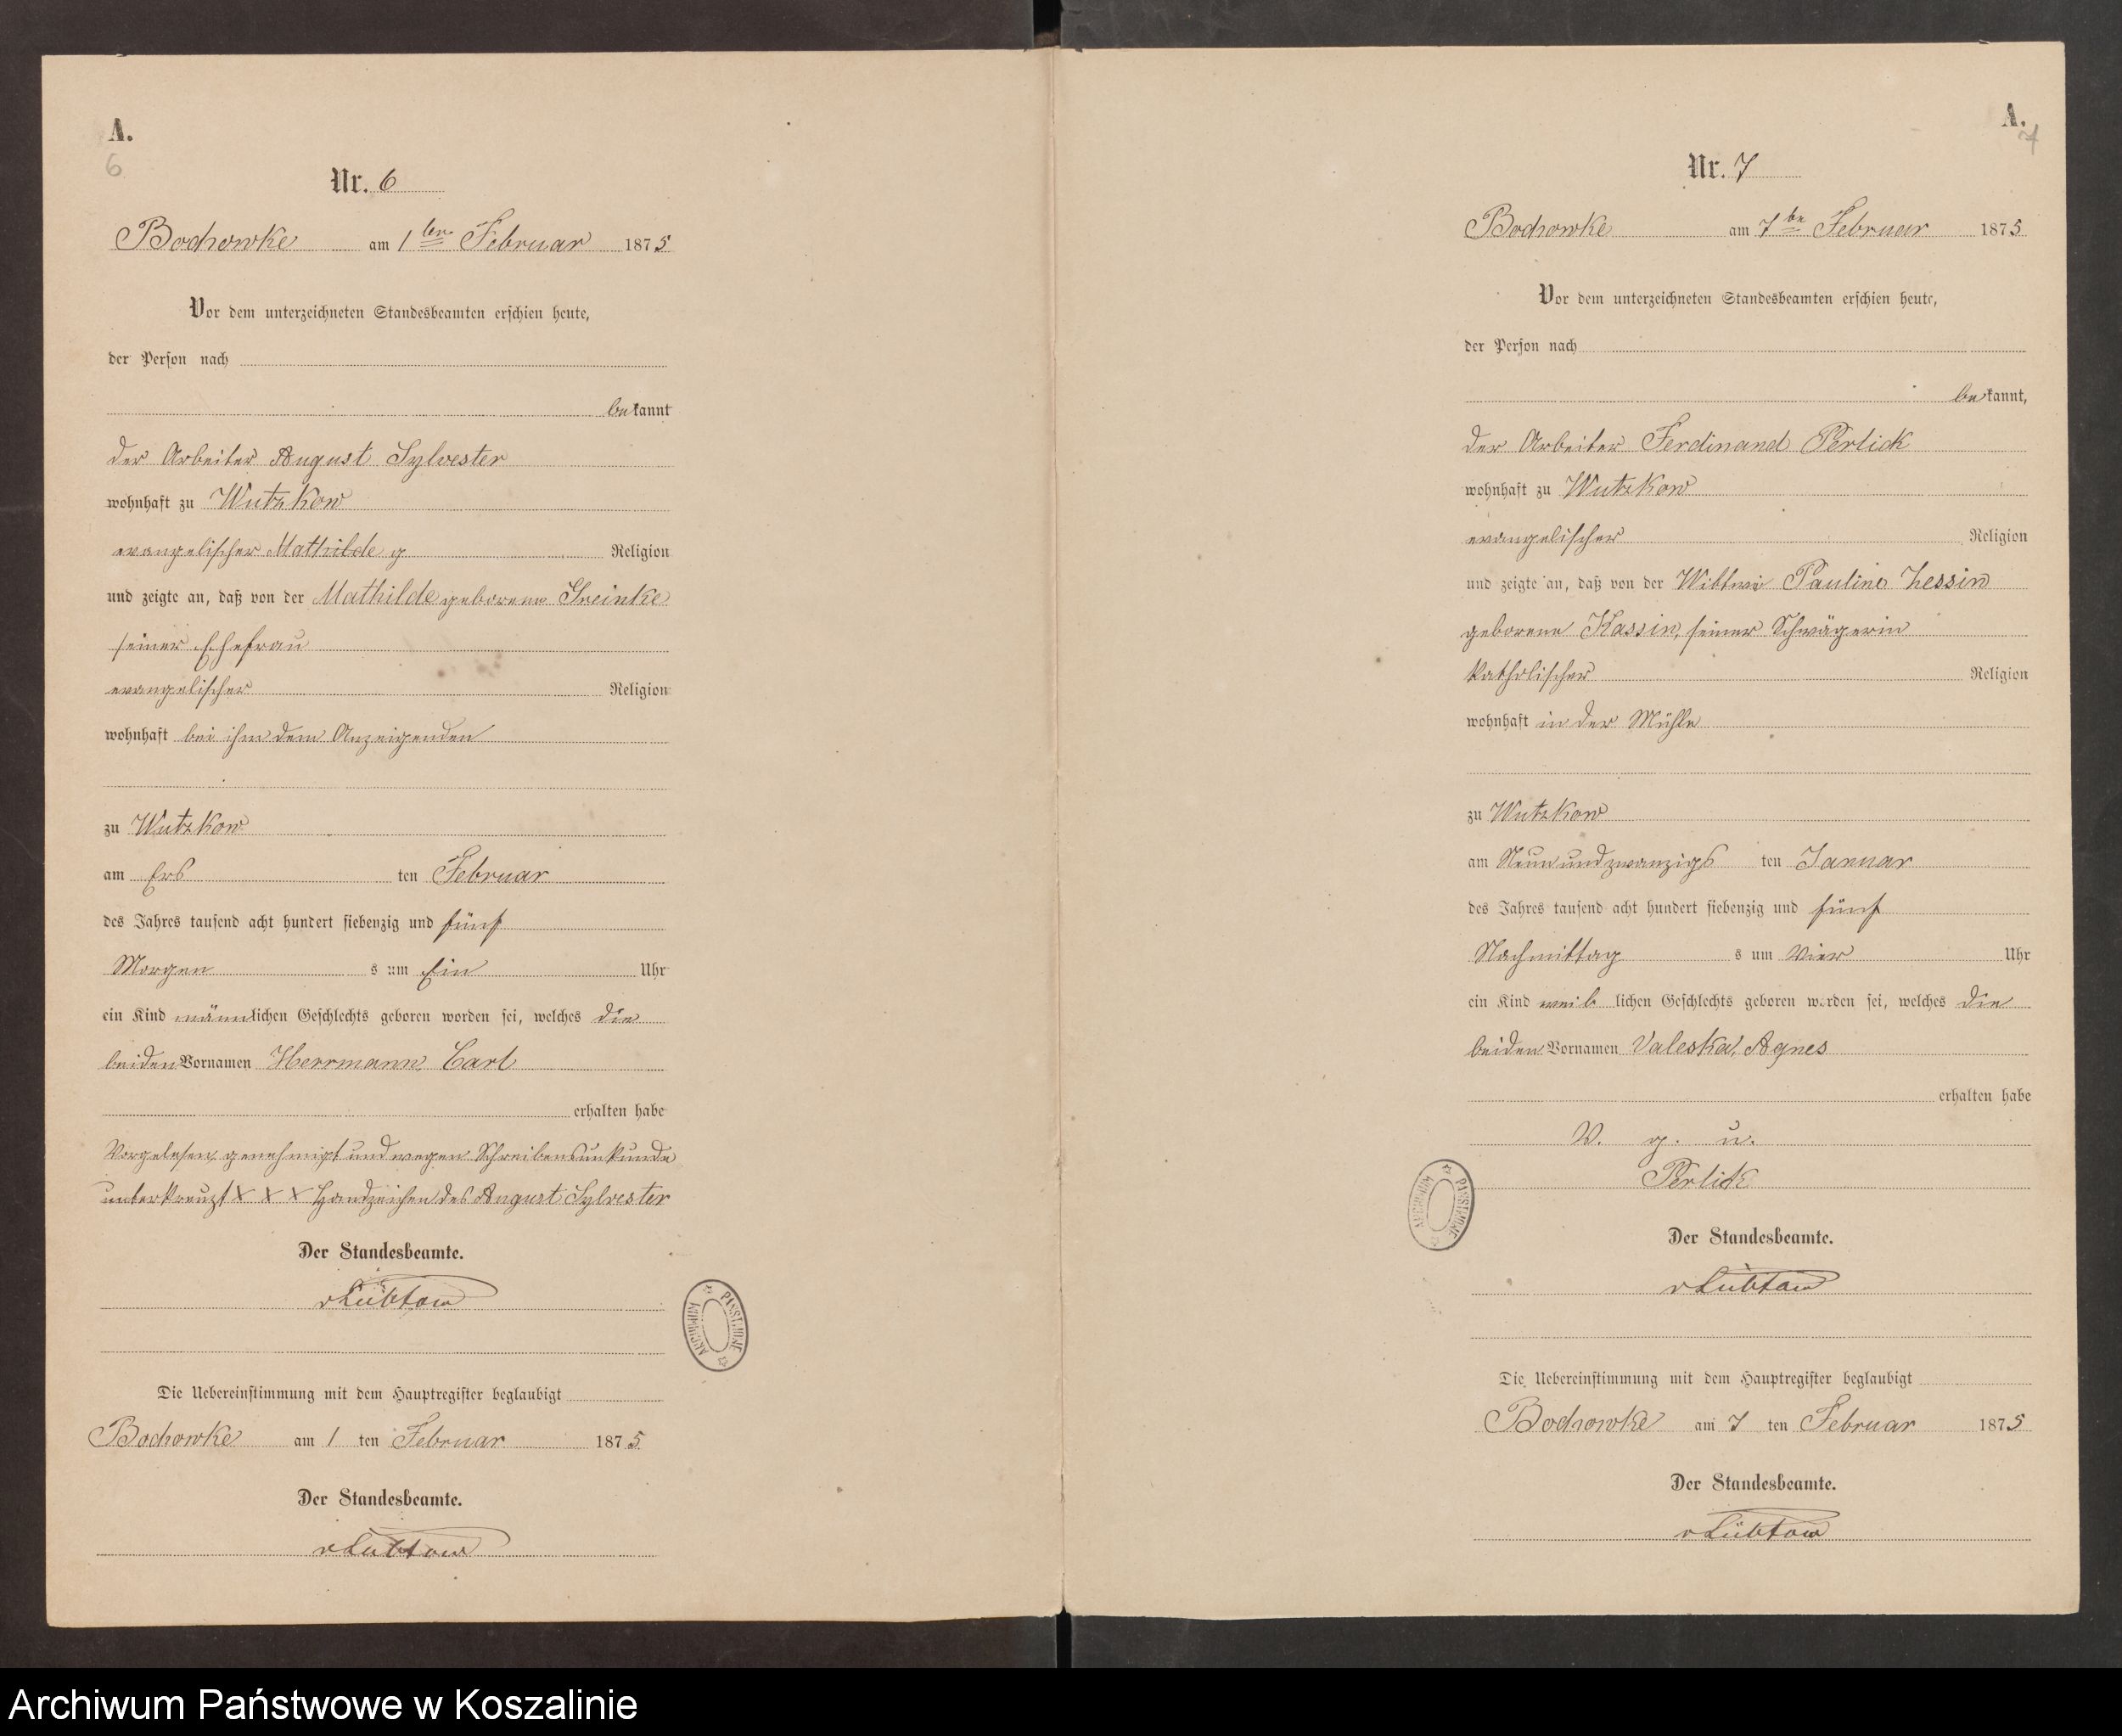 A.
6
Nr. 6
Bochowke am 1ten Februar 1875
Vor dem unterzeichneten Standesbeamten erschien heute,
der Person nach
bekannt
der Arbeiter August Sylvester
wohnhaft zu Wutzkow
evangelischer Mathilde g Religion
und zeigte an, daß von der Mathilde geborene Greinke
seiner Ehefrau
evangelischer Religion
wohnhaft bei ihm dem Anzeigenden
zu Wutzkow
am Ers ten Februar
des Jahres tausend acht hundert siebenzig und fünf
Morgen s um Ein Uhr
ein Kind männlichen Geschlechts geboren worden sei, welches die
beiden Vornamen Herrmann, Carl
erhalten habe
Vorgelesen, genehmigt und wegen Schreibensunkunde
unterkreuzt X X X Handzeichen des August Sylvester
Der Standesbeamte.
vLübtow
Die Uebereinstimmung mit dem Hauptregister beglaubigt
Bochowke am 1 ten Februar 1875
Der Standesbeamte.
vLübtow
ARCHIWUM PAŃSTWOWE
A.
7
Nr. 7
Bochowke am 7ten Februar 1875
Vor dem unterzeichneten Standesbeamten erschien heute,
der Person nach
bekannt,
der Arbeiter Ferdinand Perlick
wohnhaft zu Wutzkow
evangelischer Religion
und zeigte an, daß von der Wittwe Pauline Lessin
geborene Kassin, seiner Schwägerin
katholischer Religion
wohnhaft in der Mühle
zu Wutzkow
am Neun und zwanzigs ten Januar
des Jahres tausend acht hundert siebenzig und fünf
Nachmittag s um Vier Uhr
ein Kind weib lichen Geschlechts geboren worden sei, welches die
beiden Vornamen Valeska, Agnes
erhalten habe
V. g. u.
Perlick
Der Standesbeamte.
vLübtow
Die Uebereinstimmung mit dem Hauptregister beglaubigt
Bochowke am 7 ten Februar 1875
Der Standesbeamte.
vLübtow
ARCHIWUM PAŃSTWOWE
Archiwum Państwowe w Koszalinie